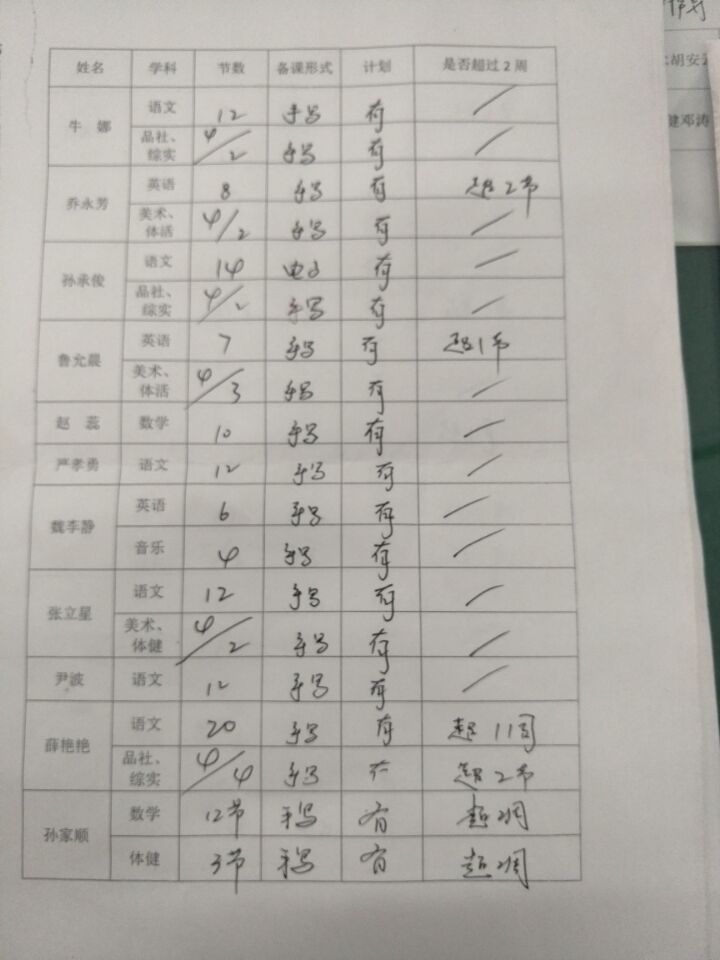 姓名 学科 节数 备课形式 计划 是否超过2周
牛 娜 语文 12 手写 有 /
品社、综实 4/2 手写 有 /
乔永芳 英语 8 手写 有 超2节
美术、体活 4/2 手写 有 /
孙承俊 语文 14 电子 有 /
品社、综实 4/2 手写 有 /
鲁允晨 英语 7 手写 有 超1节
美术、体活 4/3 手写 有 /
赵 蕊 数学 10 手写 有 /
严孝勇 语文 12 手写 有 /
魏李静 英语 6 手写 有 /
音乐 4 手写 有 /
张立星 语文 12 手写 有 /
美术、体健 4/2 手写 有 /
尹波 语文 12 手写 有 /
薛艳艳 语文 20 手写 有 超11周
品社、综实 4/4 手写 有 超2节
孙家顺 数学 12节 手写 有 超2周
体健 3节 手写 有 超2周
胡安
健邓涛